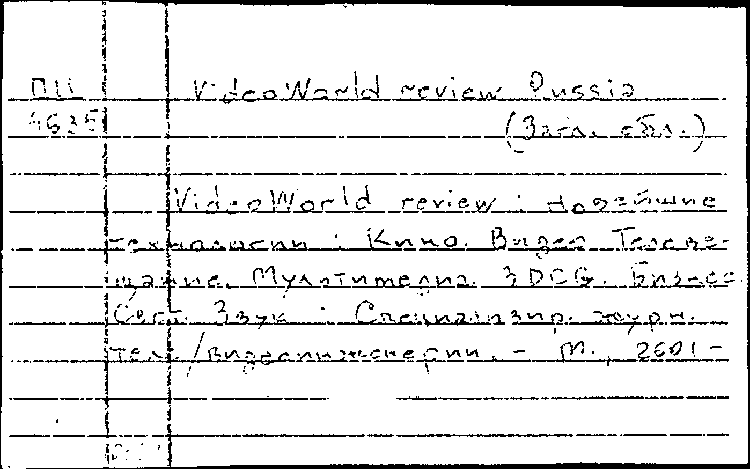 П11 VideoWorld review Russia
4635 (Загл. обл.)
VideoWorld review : новейшие
технологии : Кино. Видео. Телеве-
щание. Мультимедиа. 3DCG. Бизнес
Свет. Звук : Специализир. журн.
теле/видеоинженерии. - М., 2001 -